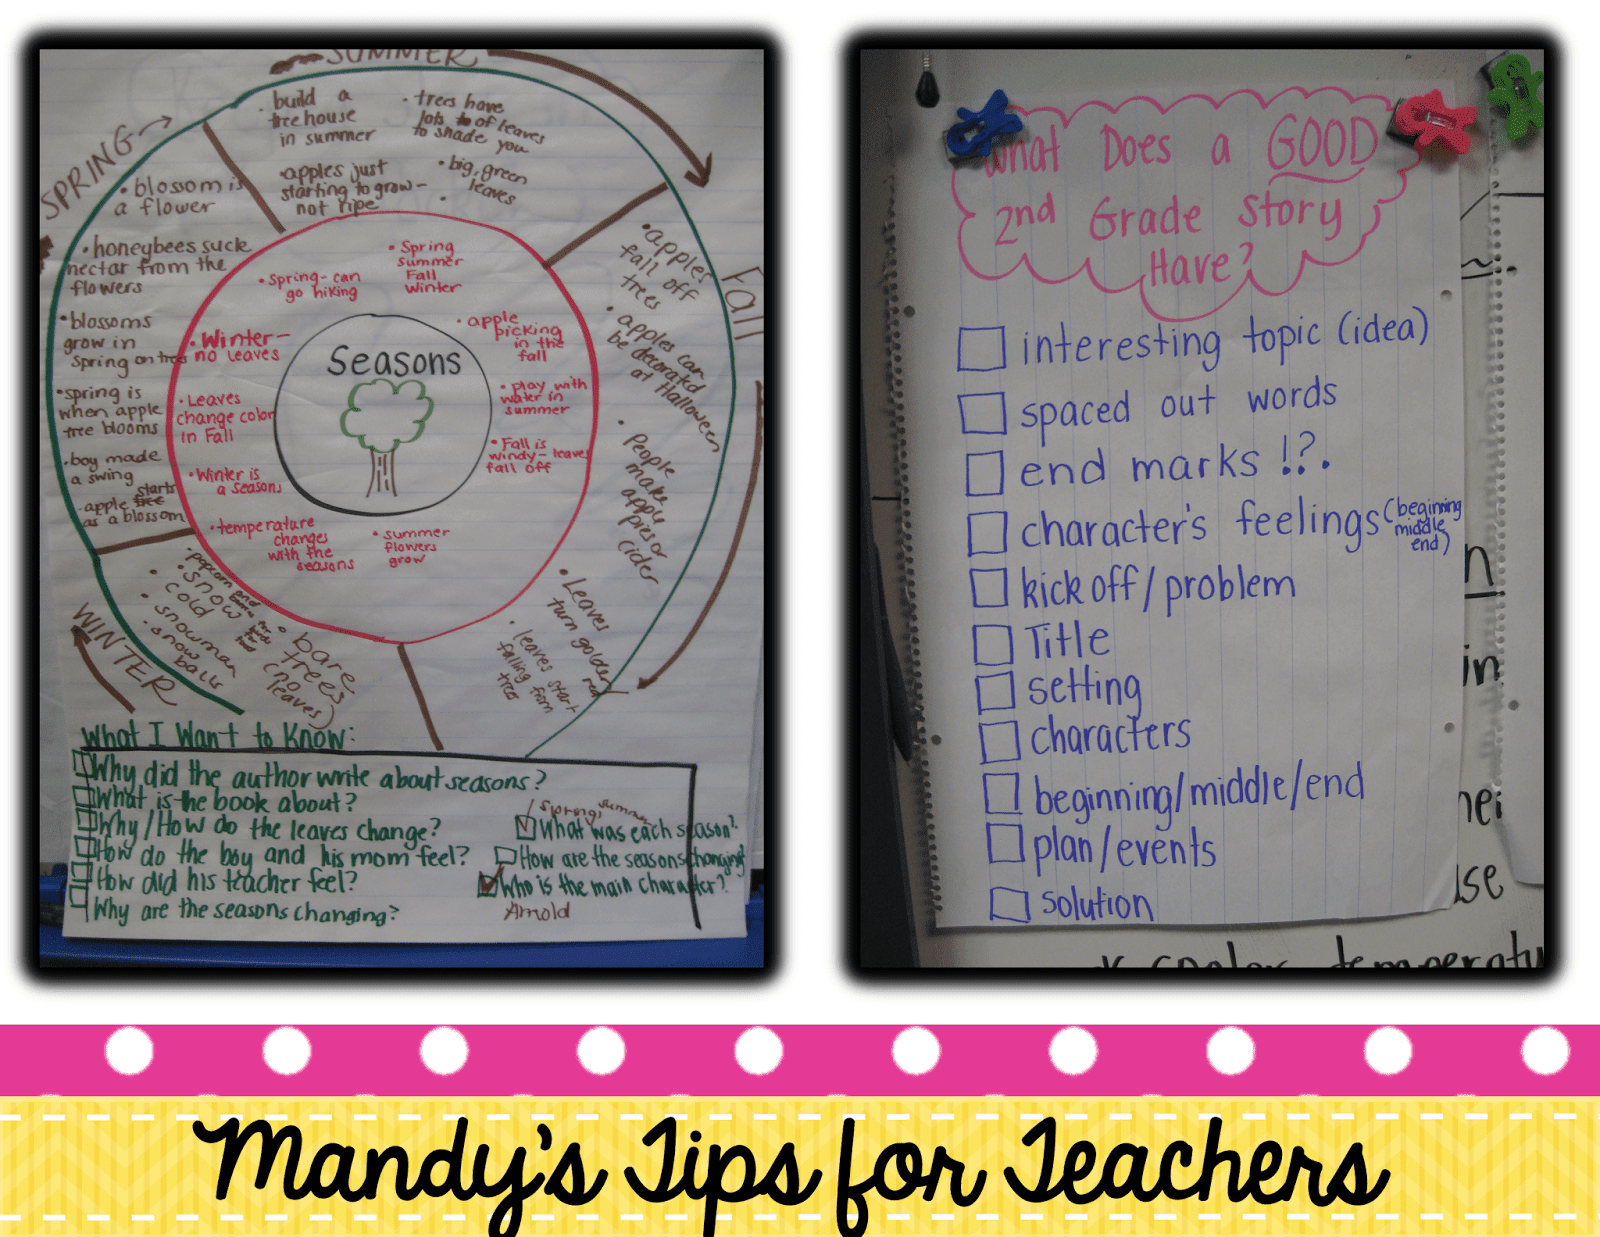 SUMMER
build a
tree house
in summer
trees have
lots of leaves
to shade you
apples just
starting to grow-
not ripe
big, green
leaves
SPRING
blossom is
a flower
honeybees suck
nectar from the
flowers
blossoms
grow in
Spring on trees
spring is
when apple
tree blooms
boy made
a swing
starts
apple tree
as a blossom
Fall
apples
fall off
trees
apples can
be decorated
at Halloween
People
make
apple
pies or
cider
Leaves
turn golden red
leaves start
falling from
trees
WINTER
popcorn and
snow
cold
snowman
snow
balls
bare
trees
(no
leaves)
Spring
summer
Fall
Winter
Spring- can
go hiking
apple
picking
in the
fall
Winter-
no leaves
play with
water in
summer
Leaves
change color
in Fall
Fall is
windy- leaves
fall off
Winter is
a seasons
temperature
changes
with the
seasons
summer
flowers
grow
Seasons
What I Want to Know:
Why did the author write about seasons?
What is the book about?
Why/How do the leaves change?
How do the boy and his mom feel?
How did his teacher feel?
Why are the seasons changing?
Spring, summer
What was each season?
How are the seasons changing?
Who is the main character?
Arnold
What Does a GOOD
2nd Grade Story
Have?
interesting topic (idea)
spaced out words
end marks !?.
character's feelings (beginning
middle
end)
kick off/problem
Title
setting
characters
beginning/middle/end
plan/events
solution
Mandy's Tips for Teachers